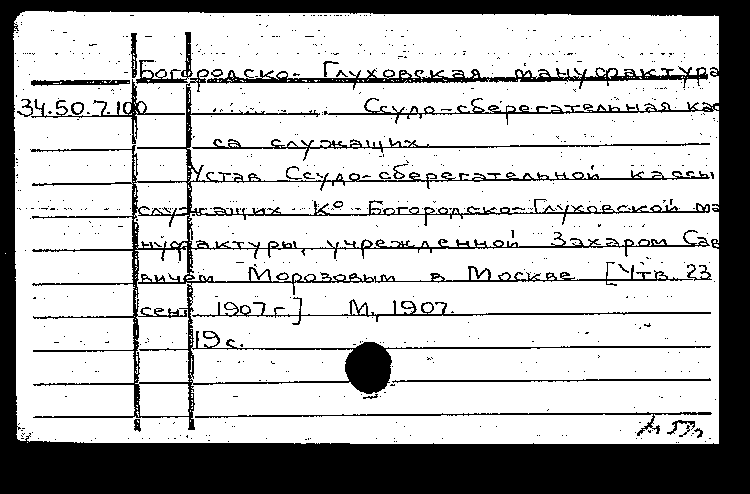 Богородско-Глуховская мануфактура
34.50.7.100 ......... Ссудо-сберегательная кас
са служащих.
Устав Ссудо-сберегательной кассы
служащих Кº Богородско-Глуховской ма
нуфактуры, учрежденной Захаром Сав
вичем Морозовым в Москве [Утв. 23
сент. 1907 г.] М., 1907.
19 с.